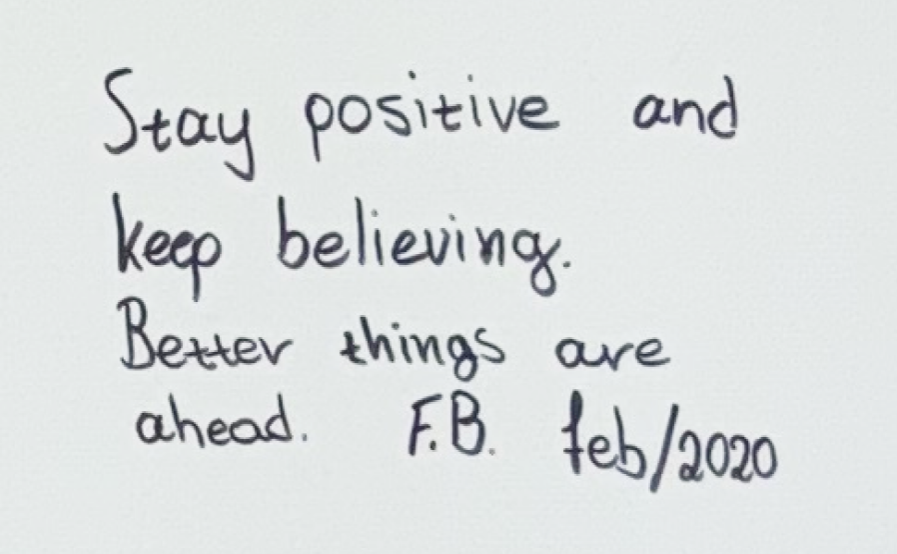 Stay positive and
keep believing.
Better things are
ahead. F.B. feb/2020